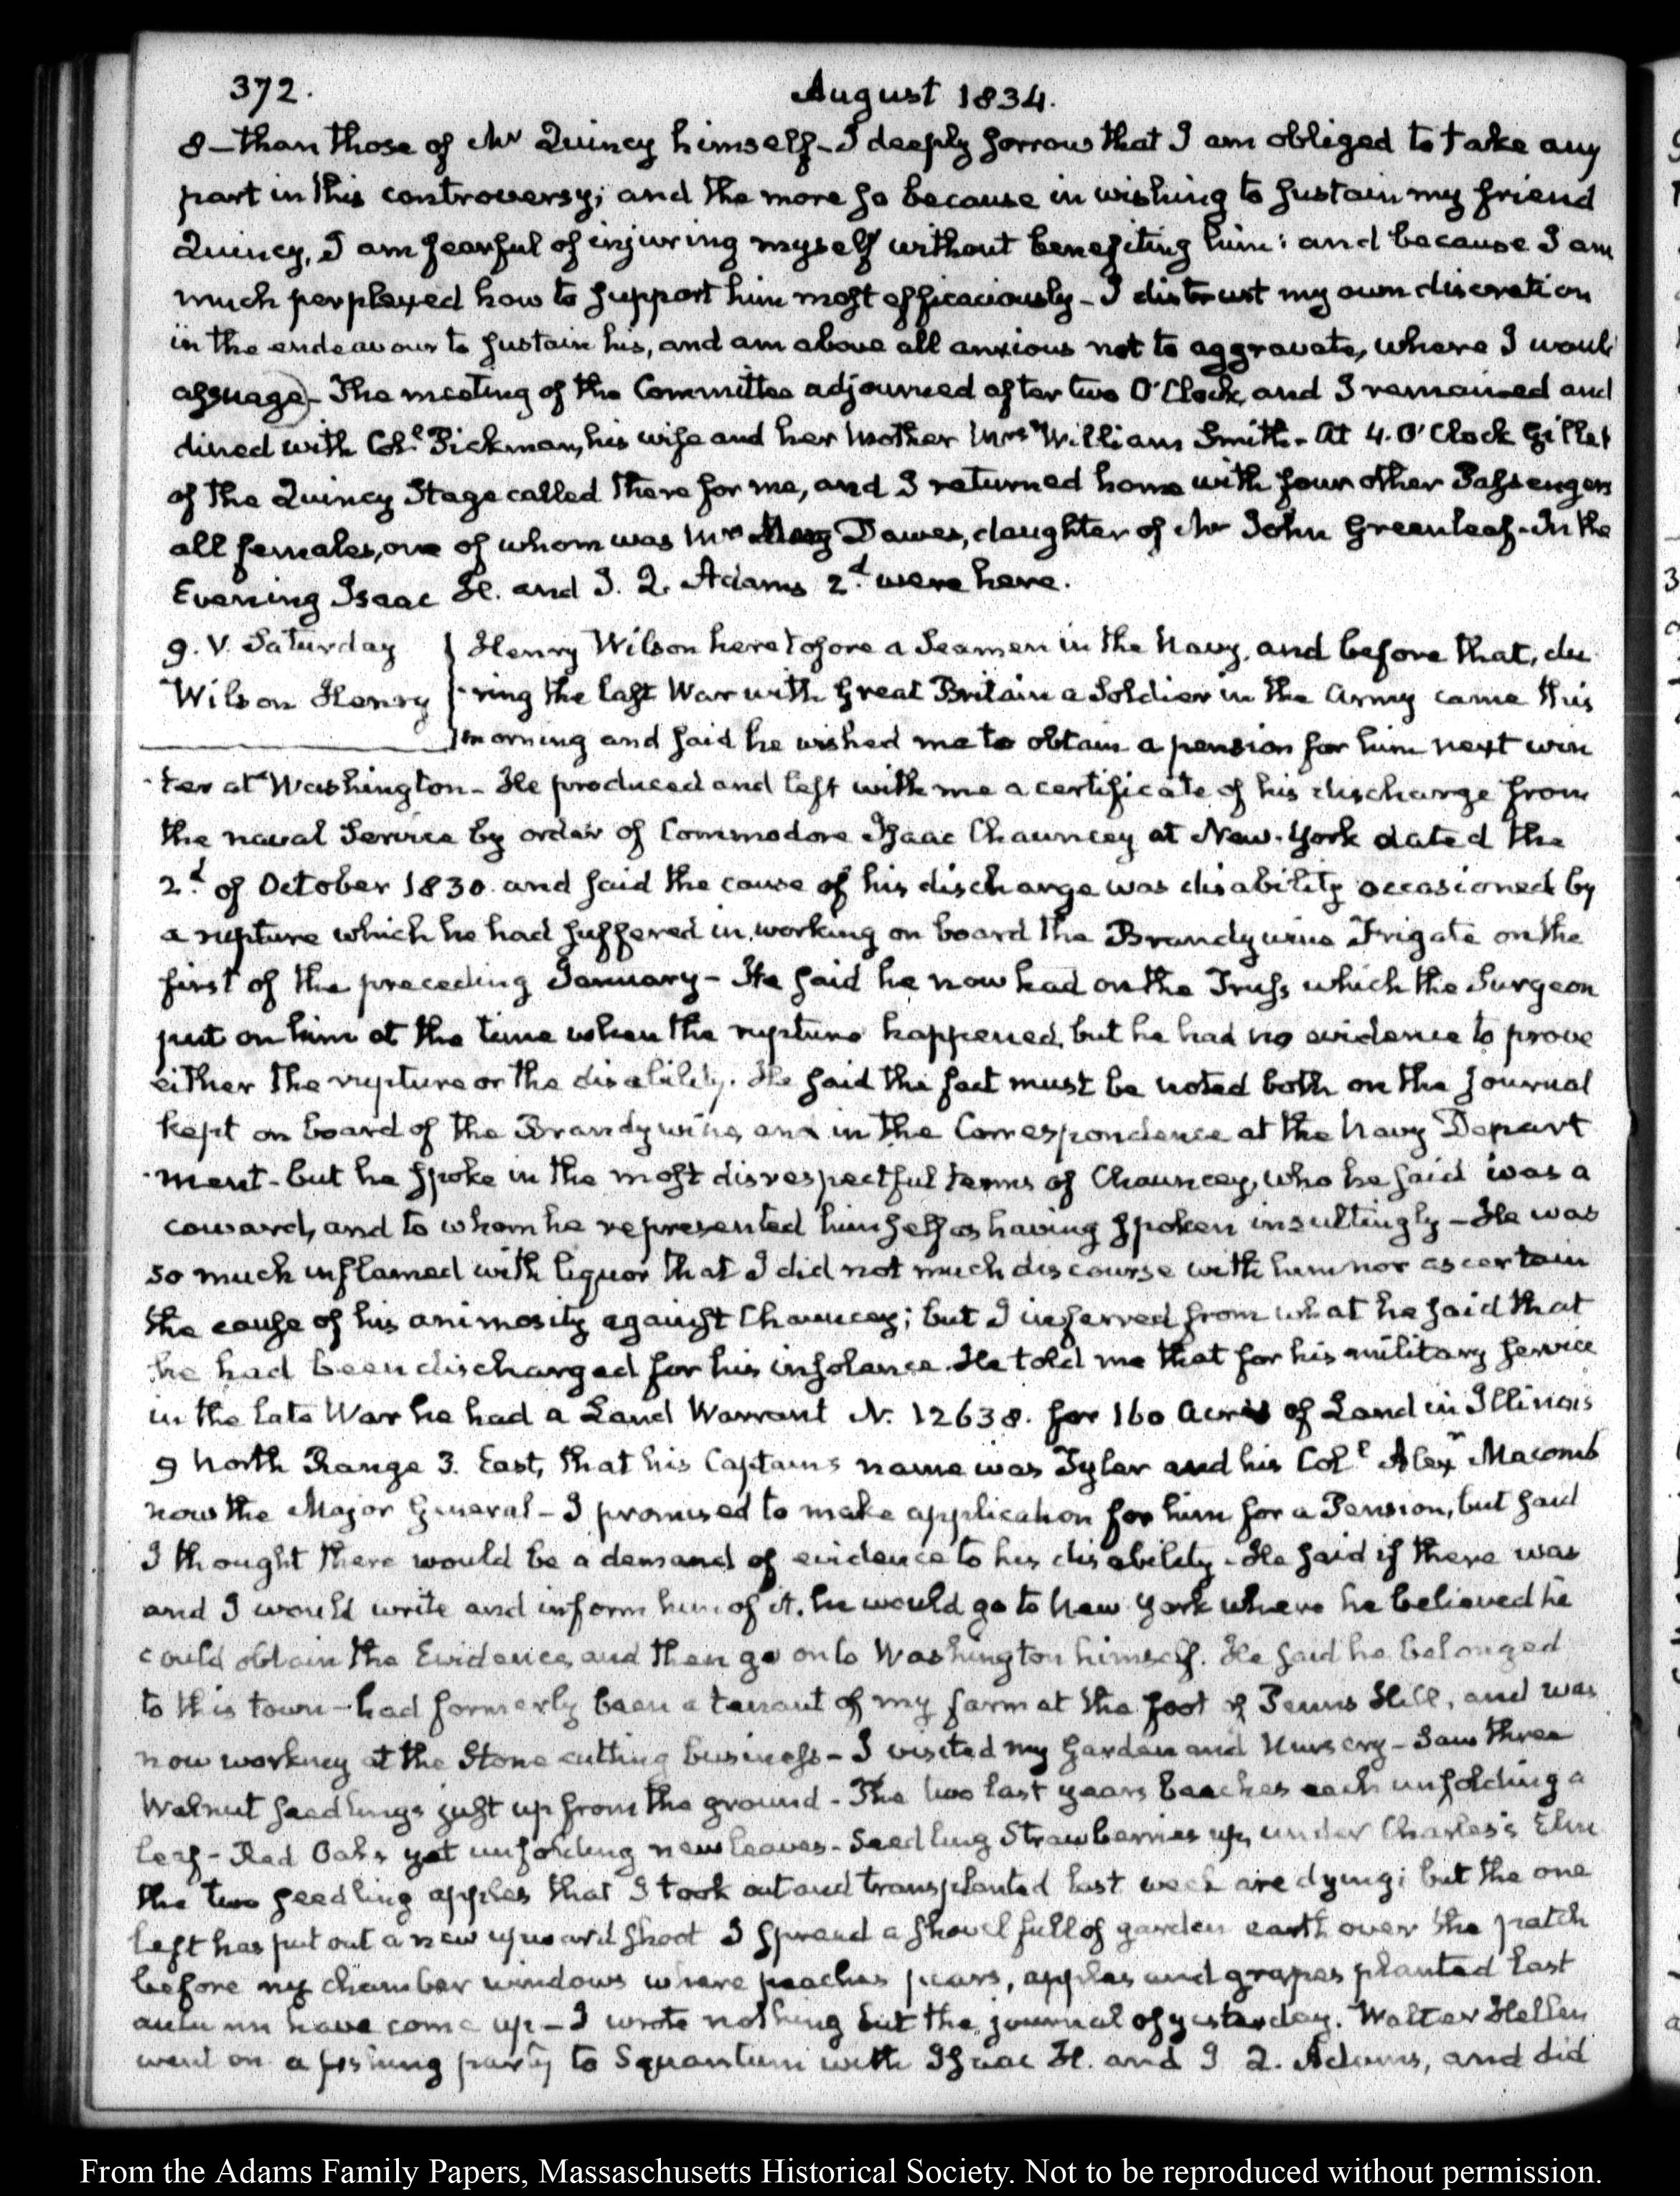 372.
August 1834.
8 – than those of Mr Quincy himself – I deeply sorrow that I am obliged to take any
part in this controversy; and the more so because in wishing to sustain my friend
Quincy, I am fearful of injuring myself without benefiting him: and because I am
much perplexed how to support him most efficaciously – I distrust my own discretion
in the endeavour to sustain his, and am above all anxious not to aggravate, where I would
assuage – The meeting of the Committee adjourned after two O'Clock, and I remained and
dined with Coll. Pickman, his wife and her Mother Mrs William Smith – At 4. O'Clock Gillet
of the Quincy Stage called there for me, and I returned home with four other Passengers
all females, one of whom was Mrs Mary Dawes, daughter of Mr John Greenleaf – In the
Evening Isaac H. and J. Q. Adams 2d. were here.
9. V. Saturday
Wilson Henry
Henry Wilson heretofore a Seamen in the Navy, and before that, du
-ring the last War with Great Britain a Soldier in the Army came this
morning and said he wished me to obtain a pension for him next win
-ter at Washington – He produced and left with me a certificate of his discharge from
the naval Service by order of Commodore Isaac Chauncey at New-York dated the
2d. of October 1830. and said the cause of his discharge was disability occasioned by
a rupture which he had suffered in working on board the Brandywine Frigate on the
first of the preceding January – He said he now had on the Truss, which the Surgeon
put on him at the time when the rupture happened, but he had no evidence to prove
either the rupture or the disability. He said the fact must be noted both on the Journal
kept on board of the Brandywine, and in the Correspondence at the Navy Depart
-ment – but he spoke in the most disrespectful terms of Chauncey, who he said was a
coward, and to whom he represented himself as having spoken insultingly – He was
so much inflamed with liquor that I did not much discourse with him nor ascertain
the cause of his animosity against Chauncey; but I inferred from what he said that
he had been discharged for his insolence. He told me that for his military service
in the late War he had a Land Warrant N. 12638. for 160 Acres of Land in Illinois
9 North Range 3. East, that his Captains name was Tyler and his Coll. Alexr Macomb
now the Major General – I promised to make application for him for a Pension, but said
I thought there would be a demand of evidence to his disability – He said if there was
and I would write and inform him of it, he would go to New York where he believed he
could obtain the Evidence, and then go on to Washington himself. He said he belonged
to this town – had formerly been a tenant of my farm at the foot of Penns Hill, and was
now working at the Stone cutting business – I visited my Garden and Nursery – Saw three
Walnut seedlings just up from the ground – The two last years beaches each unfolding a
leaf – Red Oaks yet unfolding new leaves – Seedling Strawberries up, under Charles's Elm
the two seedling apples that I took out and transplanted last week are dying; but the one
left has put out a new upward shoot I spread a shovel full of garden earth over the patch
before my chamber windows where peaches, pears, apples and grapes planted last
autumn have come up – I wrote nothing but the journal of yesterday. Walter Hellen
went on a fishing party to Squantum with Isaac H. and J. Q. Adams, and did
From the Adams Family Papers, Massaschusetts Historical Society. Not to be reproduced without permission.